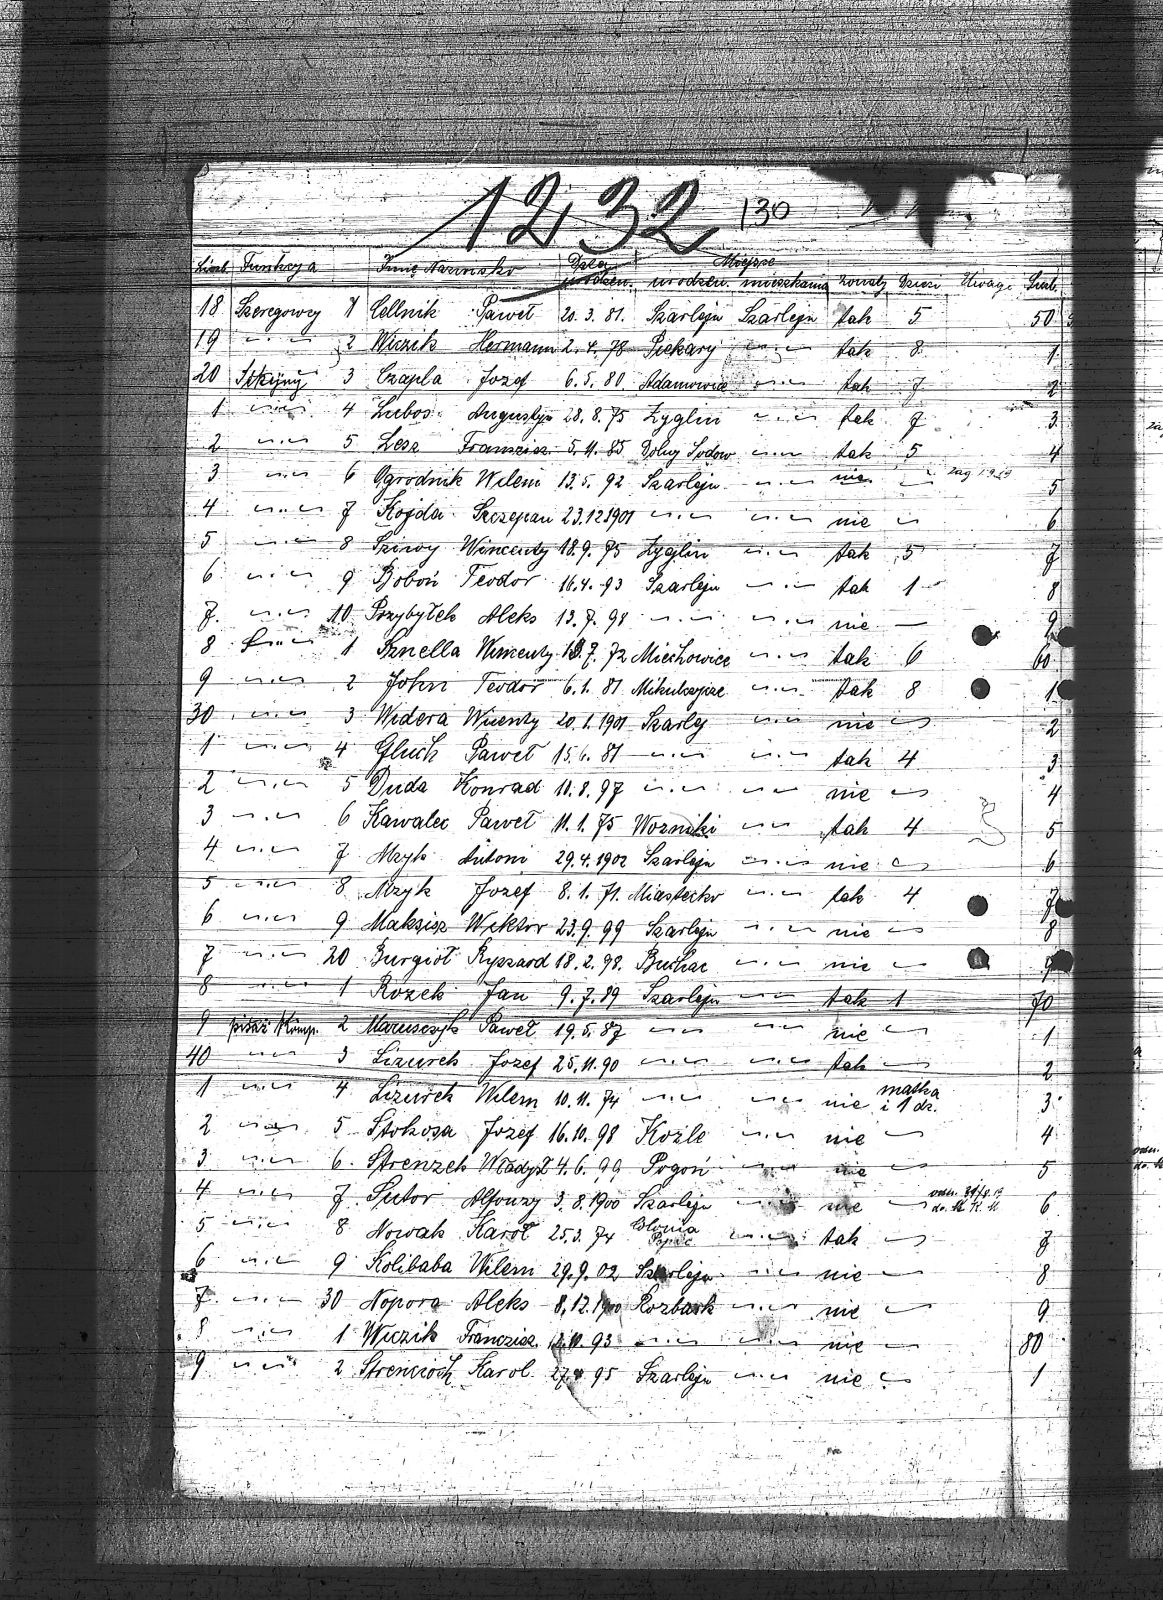 1232 130
Liczb. Funkcya Imię Nazwisko Dzień urodzen. Miejsce
urodzen. mieszkania żonaty Dzieci Uwagi Liczb.
18 Szeregowy 1 Cellnik Paweł 20.3.81. Szarleju Szarleju tak 5 50
19 -"- 2 Wiczik Hermann 2.4.78 Piekary -"- tak 8 1
20 3 Czapla Jozef 6.5.80 Adamowice -"- tak 7 2
1 -"- 4 Lubos Augustyn 28.8.75 Zyglin -"- tak 7 3
2 -"- 5 Lesz Franzisz. 5.11.85 -"- tak 5 4
3 -"- 6 Ogrodnik Wilem 13.5.92 Szarleju -"- nie - 5
4 -"- 7 Kojda Szczepan 23.12.1901 -"- -"- nie - 6
5 -"- 8 Wincenty 18.9.75 Zyglin -"- tak 5 7
6 -"- 9 Boboń Teodor 16.4.93 Szarleju -"- tak 1 8
7. -"- 10 Przybyłek Aleks 13.7.98 -"- -"- nie - 9
8 -"- 1 Sznella Wincenty 19.7.72 Miechowice -"- tak 6 60
9 -"- 2 John Teodor 6.1.81 -"- tak 8 1
30 -"- 3 Widera Wicenty 20.1.1901 Szarlej -"- nie - 2
1 -"- 4 Gluch Paweł 15.6.81 -"- -"- tak 4 3
2 -"- 5 Duda Konrad 11.8.97 -"- -"- nie - 4
3 -"- 6 Kawalec Paweł 11.1.75 Wozniki -"- tak 4 5
4 -"- 7 Mzyk Antoni 29.4.1902 Szarleju -"- nie - 6
5 -"- 8 Mzyk Jozef 8.1.71. Miastecko -"- tak 4 7
6 -"- 9 Maksisz Wiktor 23.9.99 Szarleju -"- nie - 8
7 -"- 20 Burgioł Ryszard 18.2.98. Buchac -"- nie - 9
8 -"- 1 Rozek Jan 9.7.89 Szarleju -"- tak 1 70
9 pisaż Komp. 2 Marusczyk Paweł 19.5.87 -"- -"- nie - 1
40 -"- 3 Lizurek Jozef 25.11.90 -"- -"- tak - 2
1 -"- 4 Lizurek Wilem 10.11.74 -"- -"- nie matka i 1 dz. 3
2 -"- 5 Stokosa Jozef 16.10.98 Kozle -"- nie - 4
3 -"- 6. Strenzek Władysł 4.6.99 Pogoń -"- nie - 5
4 -"- 7 Sutor Alfonzy 3.8.1900 Szarleju -"- nie - 6
5 -"- 8 Nowak Karół 25.3.74 Błonia -"- tak - 7
6 -"- 9 Kolibaba Wilem 29.9.02 Szarleju -"- nie - 8
7 -"- 30 Nopora Aleks 8.12.1900 Rozbark -"- nie - 9
8 -"- 1 Wiczik Franzisz. 93 -"- -"- nie - 80
9 -"- 2 Strencioch Karol 95 Szarleju -"- nie - 1